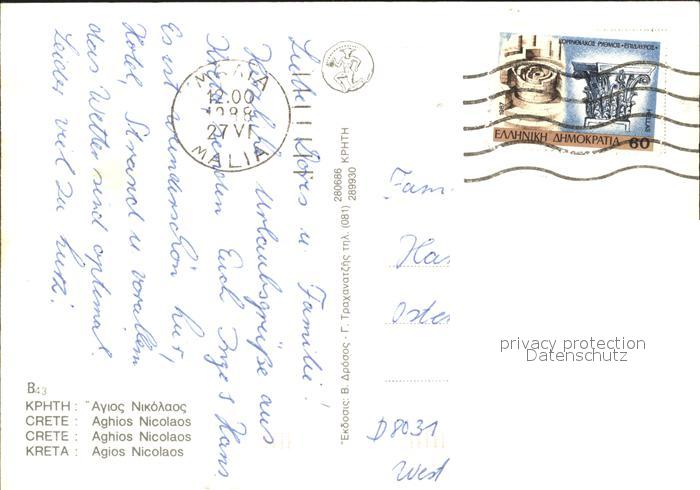 Liebe Doris u. Familie!
Herzliche Urlaubsgrüße aus
senden Euch Inge & Hans
Es ist wunderschön hier,
Hotel, Strand u. vorallem
das Wetter sind optimal.
Leider viel zu kurz!
ΜΑΛΙΑ
12.00
1988
27 VI
MALIA
ΚΟΡΙΝΘΙΑΚΟΣ ΡΥΘΜΟΣ • ΕΠΙΔΑΥΡΟΣ •
1987
HELLAS
ΕΛΛΗΝΙΚΗ ΔΗΜΟΚΡΑΤΙΑ 60
Έκδοσις: Β. Δρόσος - Γ. Τραχανατζής τηλ. (081) 280686 ΚΡΗΤΗ
289930
Fam.
Ha
Oste
D 8031
West
privacy protection
Datenschutz
B43
ΚΡΗΤΗ : Ἅγιος Νικόλαος
CRETE : Aghios Nicolaos
CRETE : Aghios Nicolaos
KRETA : Agios Nicolaos